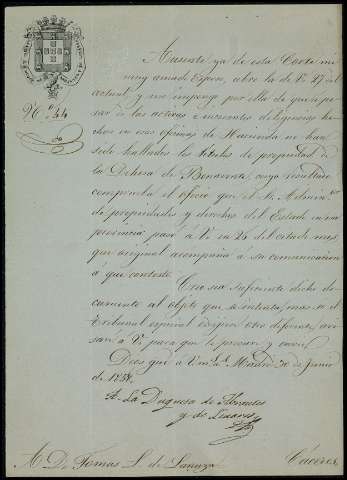 Nº 244
Ausente ya de esta Corte mi
muy amado Esposo, abro la de V. 27 del
actual y me impongo por ella de que a pe-
sar de las activas e incesantes diligencias he-
chas en esas oficinas de Hacienda no han
sido hallados los títulos de propiedad de
la Dehesa de Benavente, cuyo resultado
comprueba el oficio que el Sr. Admin.or
de propiedades y derechos del Estado en esa
provincia pasó a V. en 26 del citado mes,
que original acompaña a su comunicacion
a que contesto.
Creo sea suficiente dicho do-
cumento al objeto que se intenta, mas si el
Tribunal especial exigiese otro diferente, avi-
saré a V. para que lo procure y envie.
Dios gue. a V. m. a. Madrid 30 de Junio
de 1858.
La Duquesa de Abrantes
y de Linares
D. Tomas L. de Sanuza
Caceres